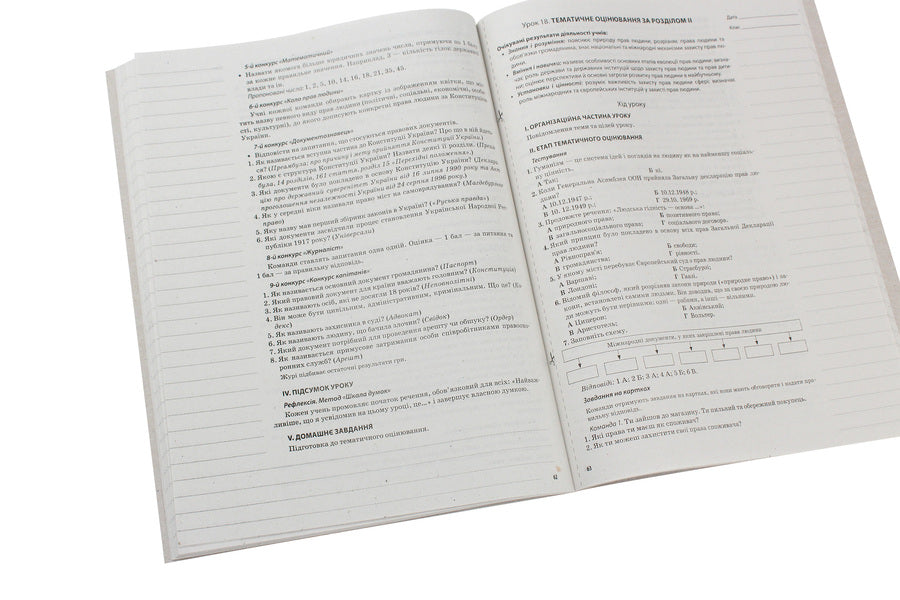 5-й конкурс «Математичний»
• Назвати якомога більше юридичних значень числа, отримуючи по 1 балу
за кожне правильне значення. Наприклад, 3 — кількість гілок державної
влади та ін.
Пропоновані числа: 1, 2, 5, 10, 14, 16, 18, 21, 35, 45.
6-й конкурс «Коло прав людини»
Учні кожної команди обирають картку із зображенням квітки, що міс-
тить назву певного виду прав людини (політичні, соціальні, економічні, особи-
сті, культурні), до якого дописують конкретні права людини за Конституцією
України.
7-й конкурс «Документознавець»
• Відповісти на запитання, що стосуються правових документів.
1. Як називається вступна частина до Конституції України? Про що в ній йдеть-
ся? (Преамбула: про причину і мету прийняття Конституції України.)
2. Якою є структура Конституції України? Назвати деякі її розділи. (Преам-
була, 14 розділів, 161 стаття, розділ 15 «Перехідні положення».)
3. Які документи було покладено в основу Конституції України? (Деклара-
цію про державний суверенітет України від 16 липня 1990 року та Акт
проголошення незалежності України від 24 серпня 1996 року.)
4. Як у середні віки називали право міст на самоврядування? (Магдебурзьке
право)
5. Яку назву мав перший збірник законів в Україні? («Руська правда»)
6. Які документи засвідчили процес становлення Української Народної Рес-
публіки 1917 року? (Універсали)
8-й конкурс «Журналіст»
Команди ставлять запитання одна одній. Оцінка — 1 бал — за питання та
1 бал — за правильну відповідь.
9-й конкурс «Конкурс капітанів»
1. Як називається основний документ громадянина? (Паспорт)
2. Який правовий документ для країни вважають головним? (Конституція)
3. Як називають осіб, які не досягли 18 років? (Неповнолітні)
4. Він може бути цивільним, адміністративним, кримінальним. Що це? (Ко-
декс)
5. Як називають захисника в суді? (Адвокат)
6. Як називають людину, що бачила злочин? (Свідок)
7. Який документ потрібний для проведення арешту чи обшуку? (Ордер)
8. Як називається примусове затримання особи співробітниками правоохо-
ронних служб? (Арешт)
Журі підбиває остаточні результати гри.
IV. ПІДСУМОК УРОКУ
Рефлексія. Метод «Шкала думок»
Кожен учень промовляє початок речення, обов'язковий для всіх: «Найваж-
ливіше, що я усвідомив на цьому уроці, це...» і завершує власною думкою.
V. ДОМАШНЄ ЗАВДАННЯ
Підготовка до тематичного оцінювання.
62
Урок 18. ТЕМАТИЧНЕ ОЦІНЮВАННЯ ЗА РОЗДІЛОМ II
Дата
Клас
Очікувані результати діяльності учнів:
• Знання і розуміння: пояснює природу прав людини; розрізняє права людини та
обов'язки громадянина; знає національні та міжнародні механізми захисту прав лю-
дини.
• Вміння і навички: називає особливості основних етапів еволюції прав людини; визна-
чає роль держави та державних інституцій щодо захисту прав людини та прав дити-
ни; оцінює перспективи й основні загрози розвитку прав людини в майбутньому.
• Установки і цінності: розуміє важливість захисту прав людини; сфері визначає
роль міжнародних та європейських інституцій у захисті прав людини.
Хід уроку
I. ОРГАНІЗАЦІЙНА ЧАСТИНА УРОКУ
Повідомлення теми та цілей уроку.
II. ЕТАП ТЕМАТИЧНОГО ОЦІНЮВАННЯ
Тестування
1. Гуманізм — це система ідей і поглядів на людину як на найвищу соціаль-
ну цінність.
А Так; Б ні.
2. Коли Генеральна Асамблея ООН прийняла Загальну декларацію прав лю-
дини?
А 10.12.1947 р.; Б 10.12.1948 р.;
В 10.12.1949 р.; Г 29.10.1969 р.
3. Продовжте речення: «Людська гідність — основа ...»:
А природного права; Б позитивного права;
В загальносоціального права; Г соціального договора.
4. Який принцип було покладено в основу всіх прав Загальної Декларації
прав людини?
А Рівноправ'я; Б свободи;
В громадянства; Г рівності.
5. У якому місті перебуває Європейський суд з прав людини?
А Варшаві; Б Страсбурзі;
В Лондоні; Г Гаазі.
6. Відомий філософ, який розрізняв закони природи («природне право») і за-
кони, встановлені самими людьми. Він доводив, що за своєю природою лю-
ди можуть бути нерівними: одні — рабами, а інші — вільними.
А Цицерон; Б Аквінський;
В Аристотель; Г Вольтер.
7. Заповніть схему.
Міжнародні документи, у яких закріплені права людини
Відповіді: 1 А; 2 Б; 3 А; 4 А; 5 Б; 6 В.
Завдання на картках
Команди отримують завдання на картках, які вони мають обговорити і надати пра-
вильну відповідь.
Команда 1. Ти зайшов до магазину. Ти пильний та обережний покупець.
1. Які права ти маєш як споживач?
2. Як ти можеш захистити свої права споживача?
63